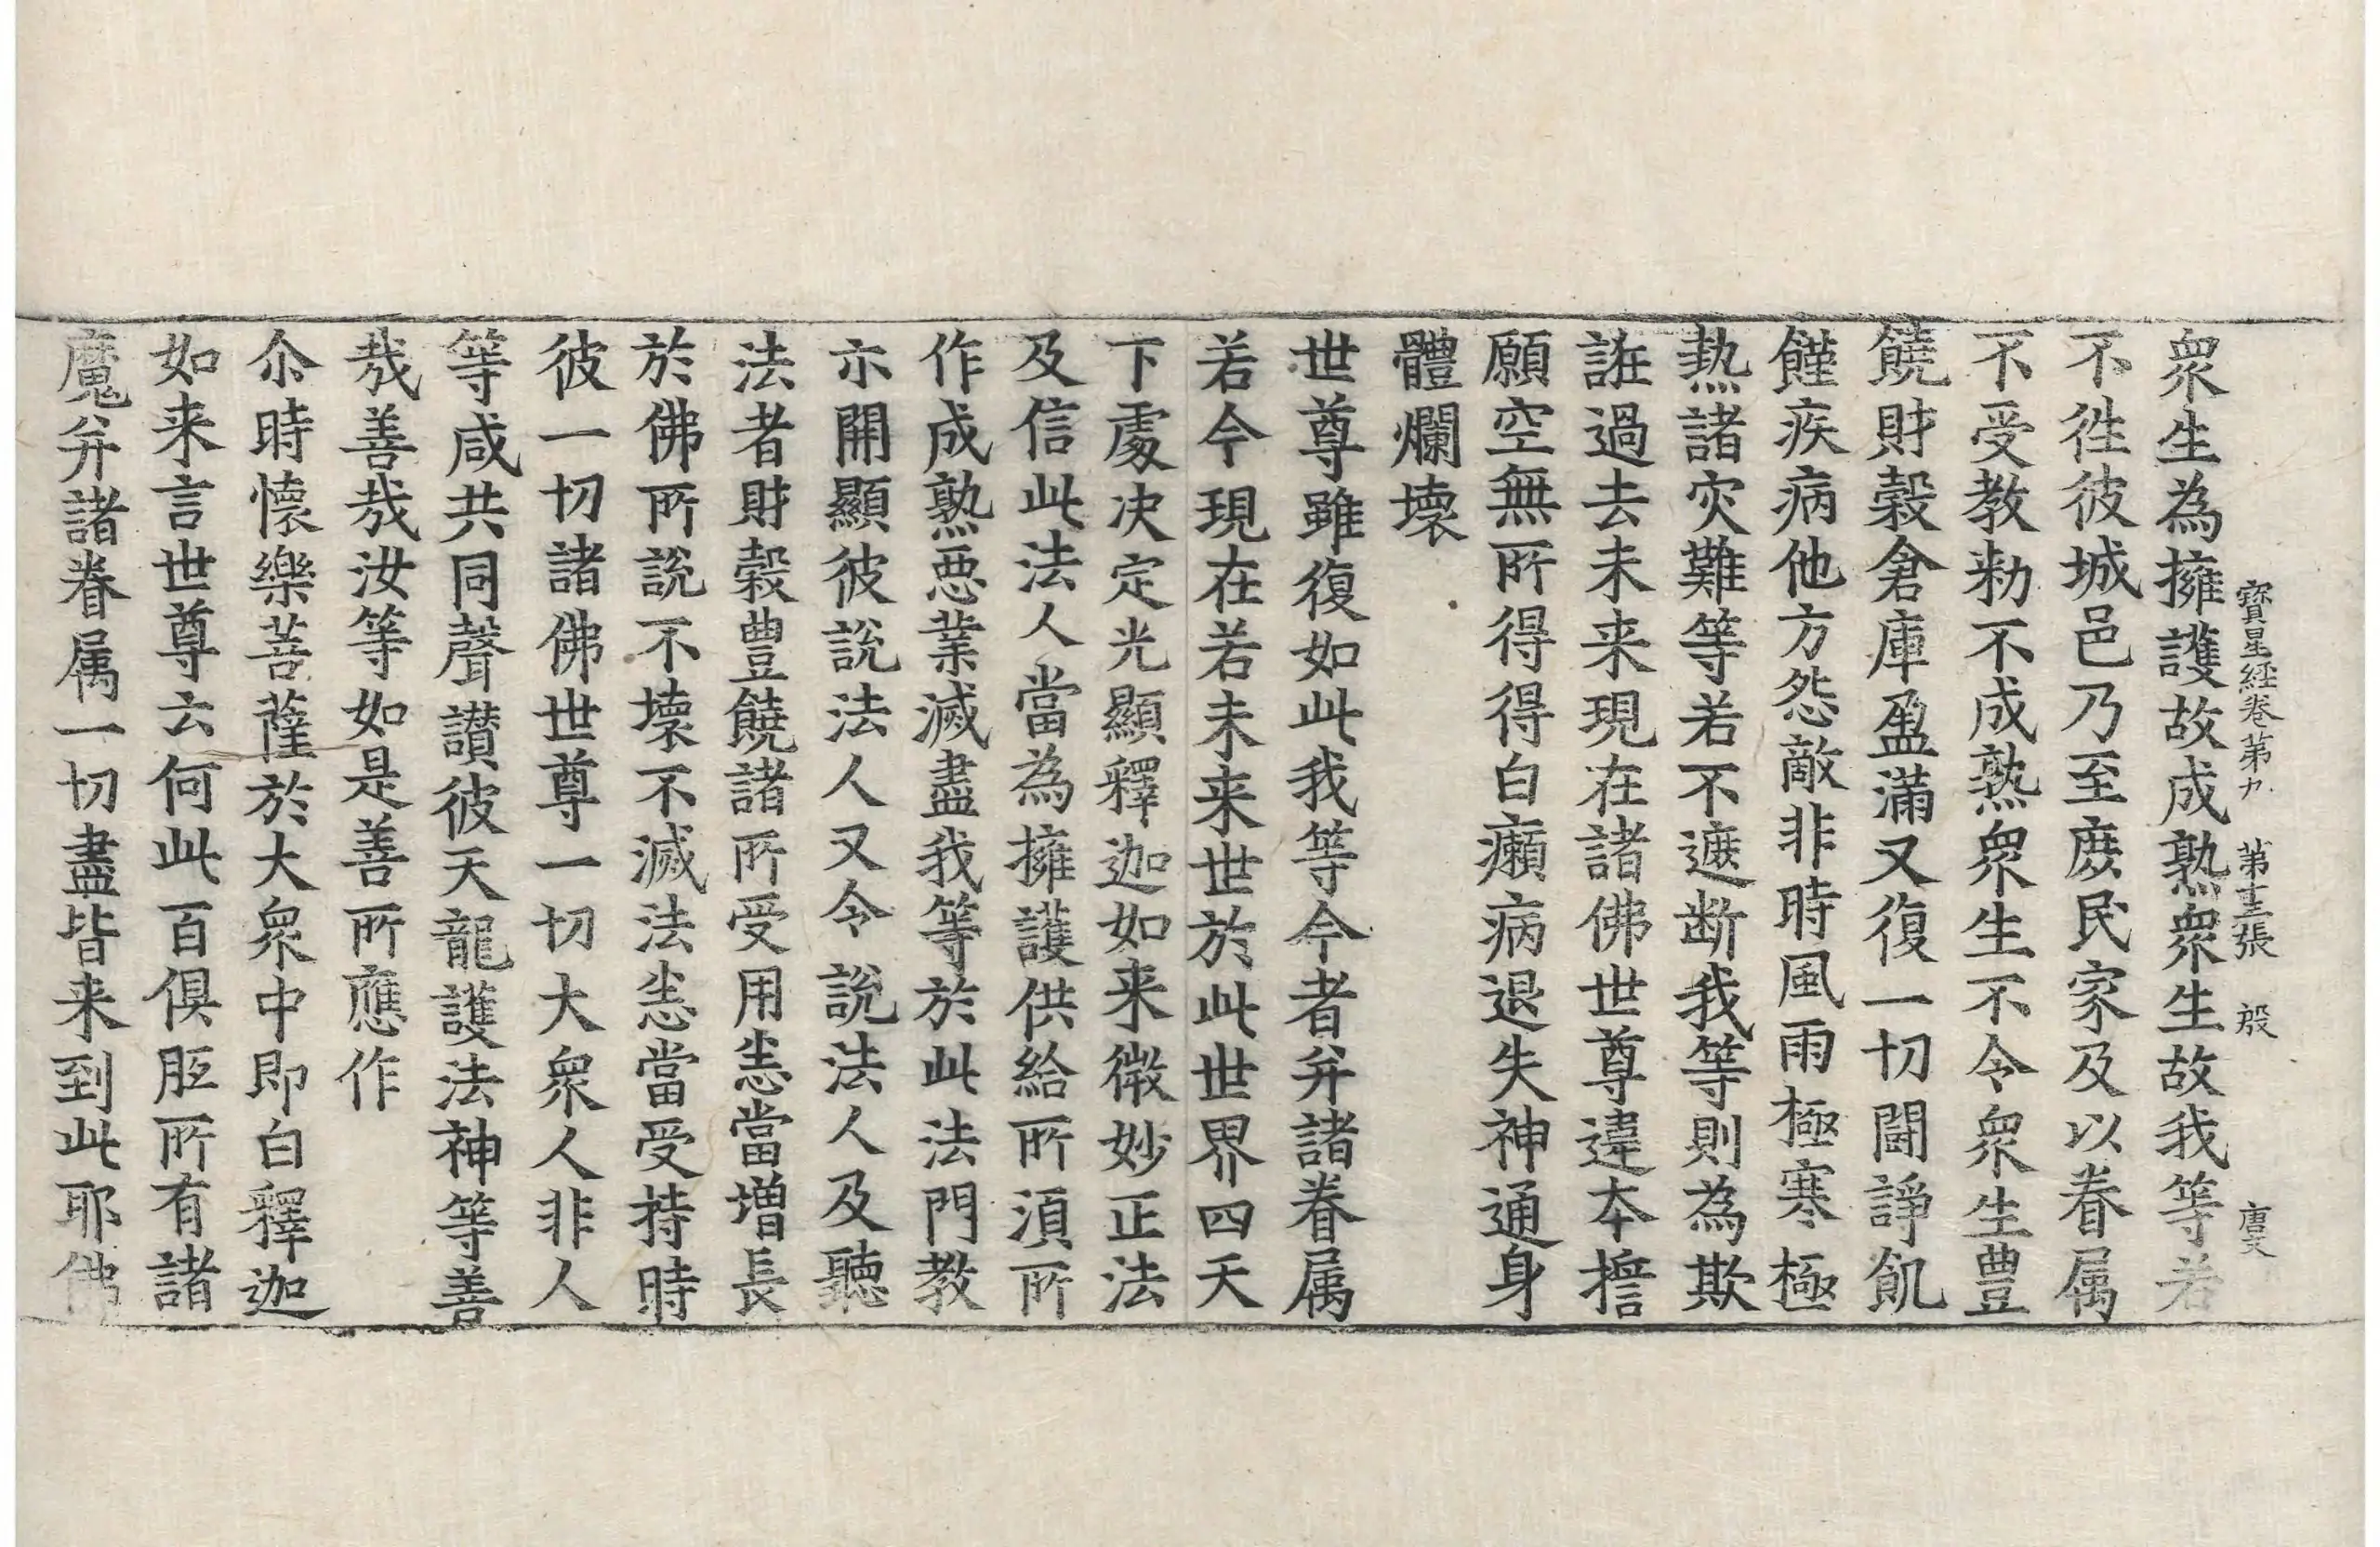 寶星経卷苐九 苐十三張 殷
衆生為擁護故成熟衆生故我等若
不徃彼城邑乃至庻民家及以眷属
不受教勑不成熟衆生不令衆生豐
饒財糓倉庫盈滿又復一切鬪諍飢
饉疾病他方怨敵非時風雨極寒極
熱諸灾難等若不遮断我等則為欺
誑過去未来現在諸佛世尊違本擔
願空無所得得白癩病退失神通身
體爛壞
世尊雖復如此我等今者弁諸眷属
若今現在若未来世於此世界四天
下處决定光顯釋迦如来微妙正法
及信此法人當為擁護供給所湏所
作成熟惡業滅盡我等於此法門教
示開顯彼說法人又令說法人及聽
法者財糓豊饒諸所受用恙當增長
於佛所說不壞不滅法恙當受持時
彼一切諸佛世尊一切大衆人非人
等咸共同聲讃彼天龍護法神等善
哉善哉汝等如是善所應作
尒時懐樂菩薩於大衆中即白釋迦
如来言世尊云何此百俱胝所有諸
魔弁諸眷属一切盡皆来到此耶佛